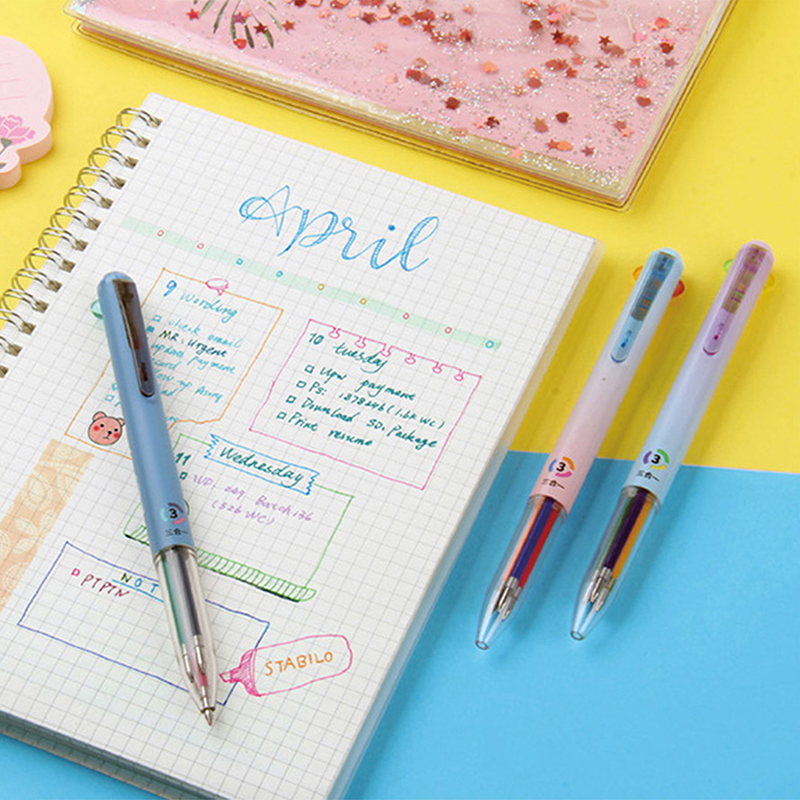 April
9 Wording
check email
MR. Urgent
update Payment
10 tuesday
Upw payment
Ps: 1378246 (1.6k WC)
Download SD. Package
Print resume
11 Wednesday
WP. Batch 136
(526 WC)
NOT
PTPTN
STABILO
3
三合一
3
三合一
3
三合一